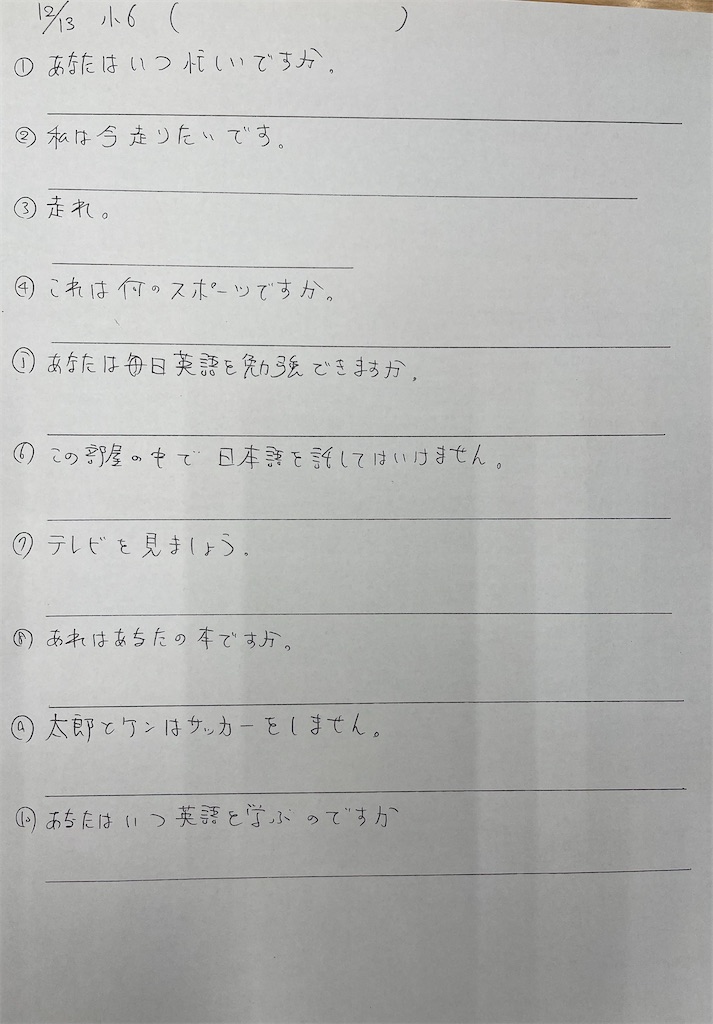 12/13 小6 ( )
① あなたはいつ忙しいですか。
② 私は今走りたいです。
③ 走れ。
④ これは何のスポーツですか。
⑤ あなたは毎日英語を勉強できますか。
⑥ この部屋の中で日本語を話してはいけません。
⑦ テレビを見ましょう。
⑧ あれはあなたの本ですか。
⑨ 太郎とケンはサッカーをしません。
⑩ あなたはいつ英語を学ぶのですか